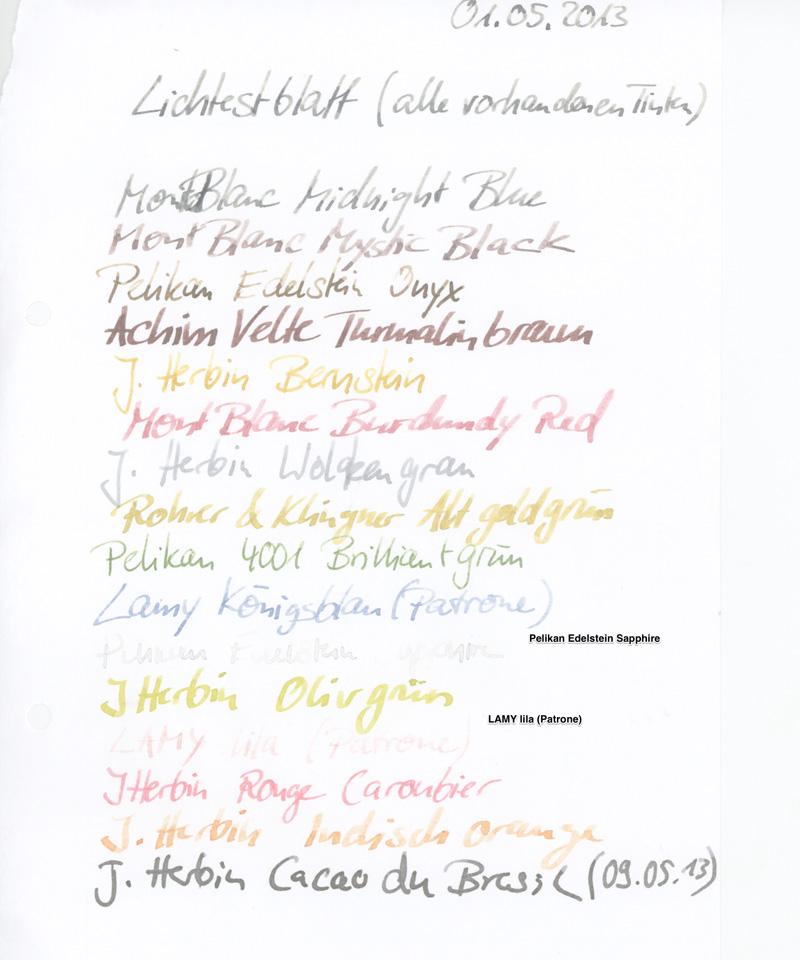 01.05.2013
Lichtestblatt (alle vorhandenen Tinten)
MontBlanc Midnight Blue
Mont Blanc Mystic Black
Pelikan Edelstein Onyx
Achim Velte Turmalinbraun
J. Herbin Bernstein
Mont Blanc Burdundy Red
J. Herbin Wolkengrau
Rohrer & Klingner Alt goldgrün
Pelikan 4001 Brilliantgrün
Lamy Königsblau (Patrone)
Pelikan Edelstein Sapphire
Pelikan Edelstein Sapphire
J Herbin Olivgrün
LAMY lila (Patrone)
LAMY lila (Patrone)
J Herbin Rouge Caroubier
J. Herbin Indisch orange
J. Herbin Cacao du Bresil (09.05.13)